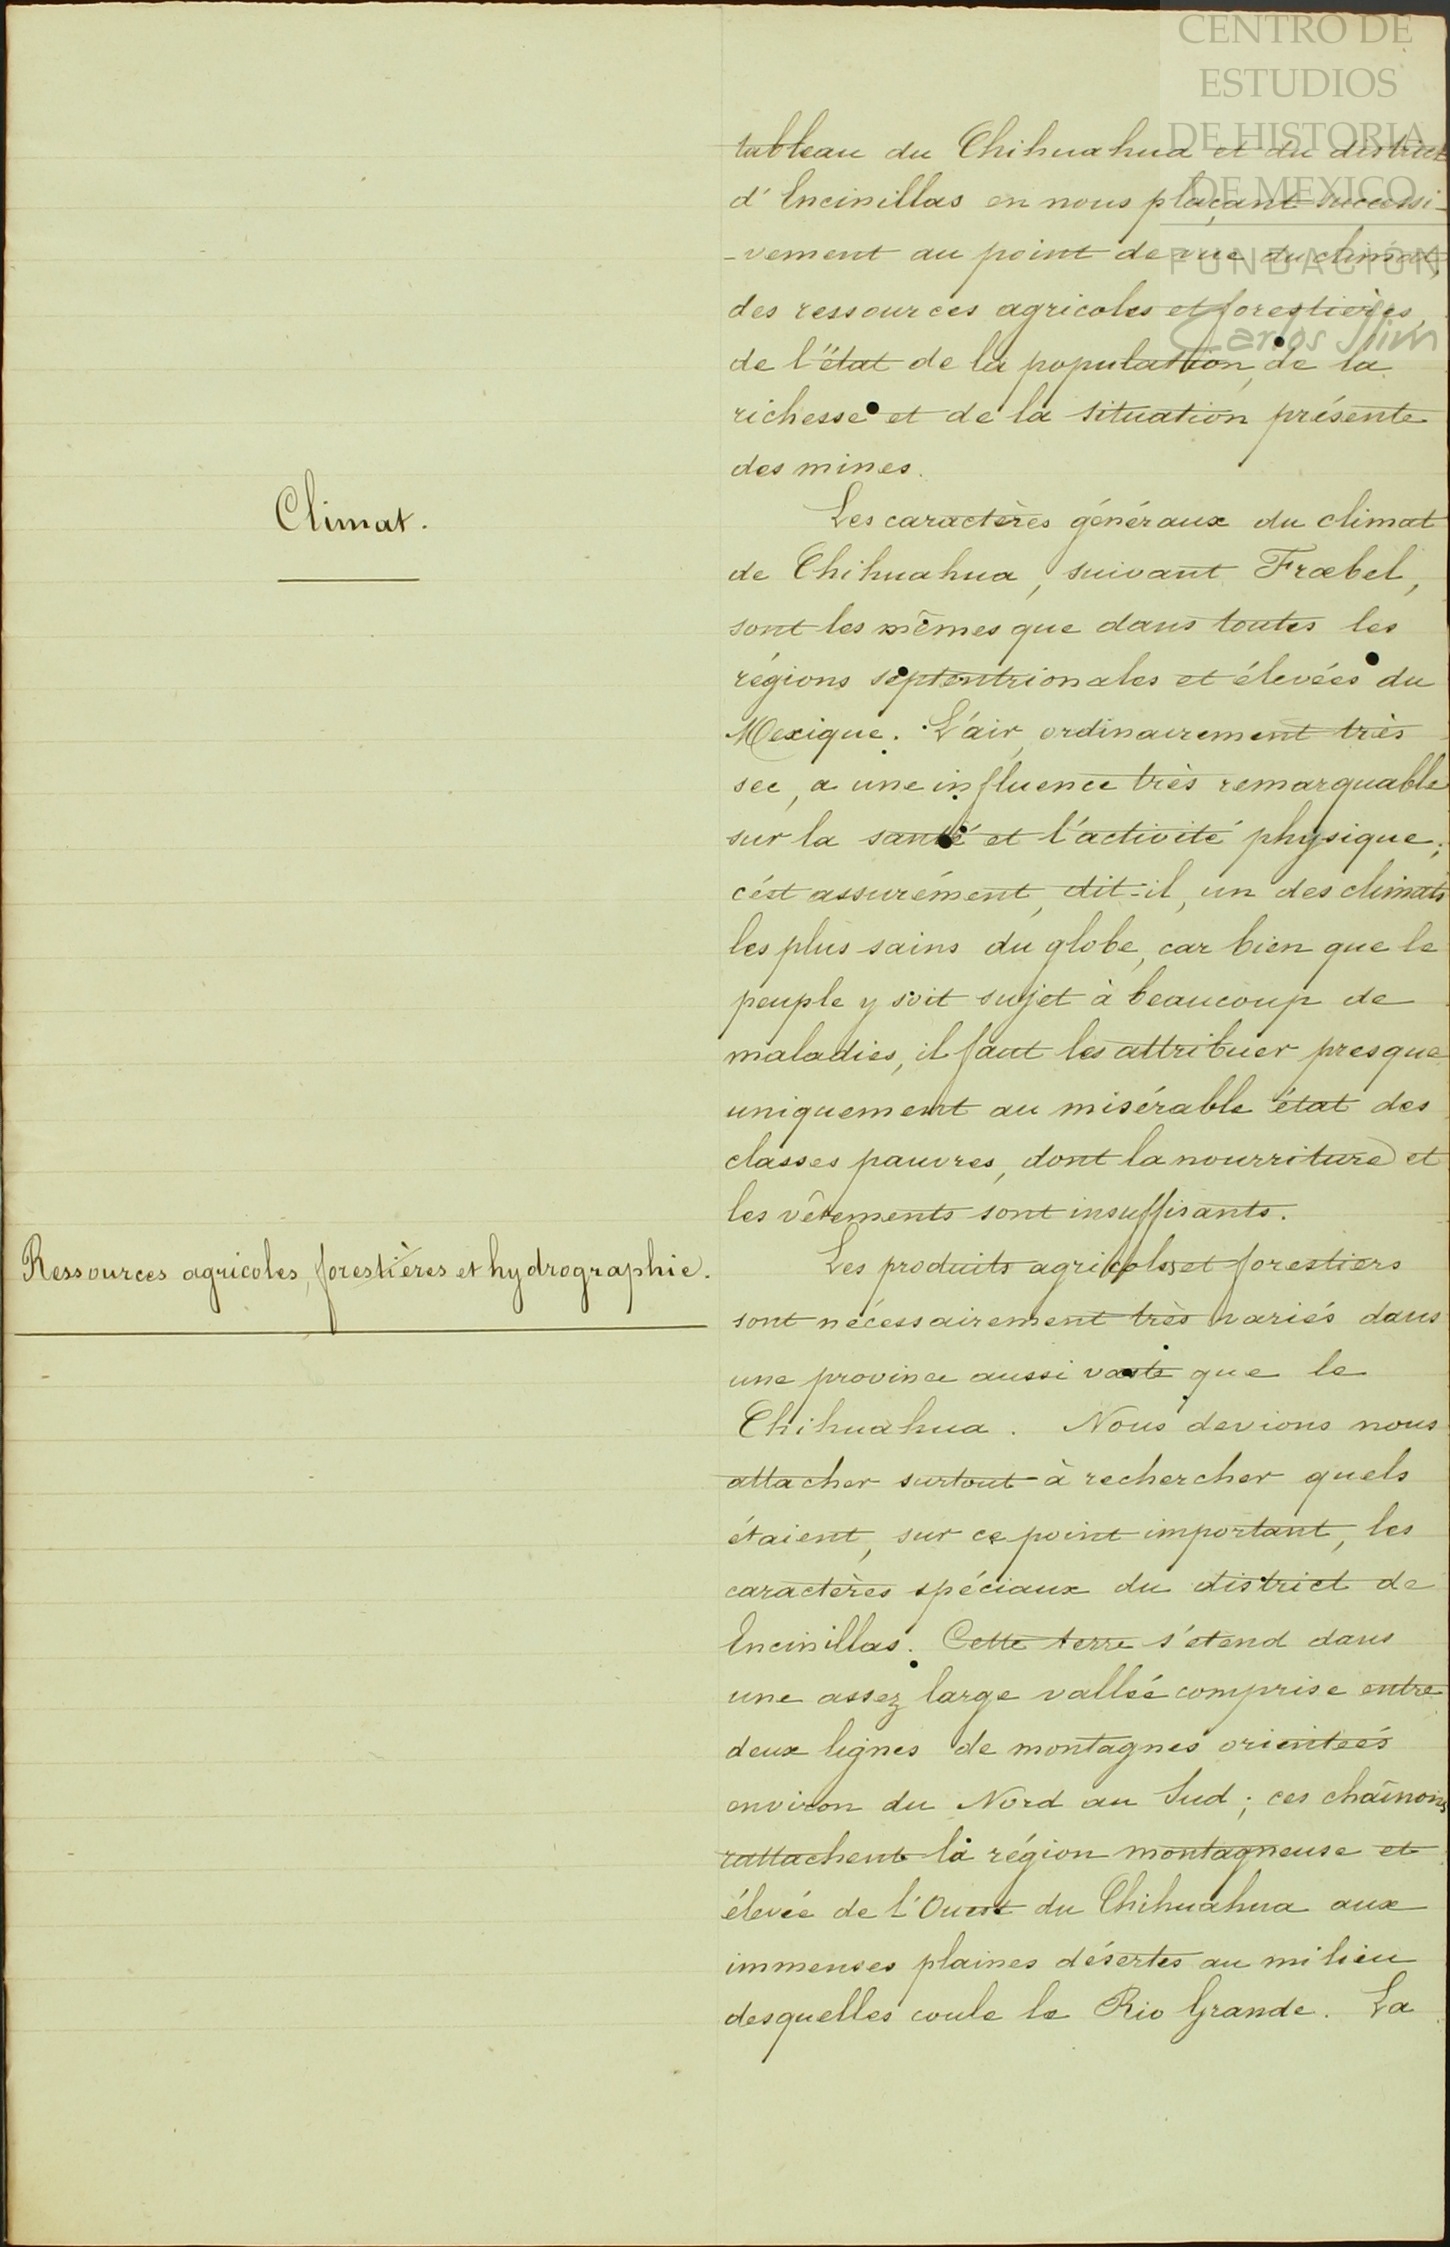 CENTRO DE
ESTUDIOS
DE HISTORIA
DE MEXICO
FUNDACIÓN
Carlos Slim
tableau du Chihuahua et du district
d'Encinillas en nous plaçant successi-
-vement au point de vue du climat,
des ressources agricoles et forestières,
de l'état de la population, de la
richesse et de la situation présente
des mines.
Climat.
Les caractères généraux du climat
de Chihuahua, suivant Frœbel,
sont les mêmes que dans toutes les
régions septentrionales et élevées du
Mexique. L'air, ordinairement très
sec, a une influence très remarquable
sur la santé et l'activité physique;
c'est assurément, dit-il, un des climats
les plus sains du globe, car bien que le
peuple y soit sujet à beaucoup de
maladies, il faut les attribuer presque
uniquement au misérable état des
classes pauvres, dont la nourriture et
les vêtements sont insuffisants.
Ressources agricoles, forestières et hydrographie.
Les produits agricoles et forestiers
sont nécessairement très variés dans
une province aussi vaste que le
Chihuahua. Nous devions nous
attacher surtout à rechercher quels
étaient, sur ce point important, les
caractères spéciaux du district de
Encinillas. Cette terre s'etend dans
une assez large vallée comprise entre
deux lignes de montagnes orientées
environ du Nord au Sud; ces chaînons
rattachent la région montagneuse et
élevée de l'Ouest du Chihuahua aux
immenses plaines désertes au milieu
desquelles coule le Rio Grande. La